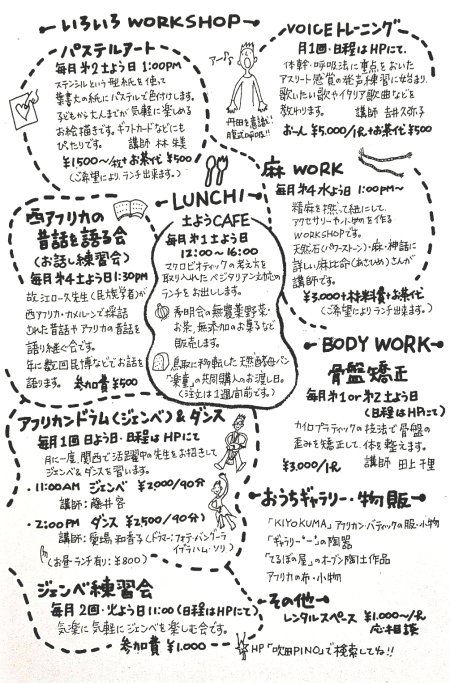 いろいろ WORKSHOP
パステルアート
毎月第2土よう日 1:00PM
ステンシルという型紙を使って
葉書大の紙にパステルで色付けします。
子どもから大人までが気軽に楽しめる
お絵描きです。ギフトカードなどにも
ぴたりです。 講師 林 朱美
¥1500〜/枚+お茶代¥500
(ご希望により、ランチ出来ます。)
アー♪
丹田を意識!
腹式呼吸!!
VOICEトレーニング
月1回・日程はHPにて.
体幹・呼吸法に重点をおいた
アスリート感覚の発声練習に始まり、
歌いたい歌やイタリア歌曲などを
教わります。 講師 吉井久弥子
お一人 ¥5.000/1h+お茶¥500
麻 WORK
毎月第4水よう日 1:00PM〜
精麻を撚って紐にして、
アクセサリーや小物を作る
WORKSHOPです。
天然石(パワーストーン)・麻・神話に
詳しい麻比命(あさひめ)さんが
講師です。
¥3.000+材料費+お茶代
(ご希望によりランチ出来ます。)
西アフリカの
昔話を語る会
(お話し練習会)
毎月第4土よう日1:30PM
故 江口一久先生(民族学者)が
西アフリカ・カメルーンで採話
された昔話やアフリカの昔話を
語り継ぐ会です。
年に数回民博などでお話を
語ります。 参加費 ¥500
LUNCH!
土ようCAFE
毎月第1土よう日
12:00〜16:00
マクロビオティックの考え方を
取り入れたベジタリアン対応の
ランチをお出しします。
秀明会の無農薬野菜・
お茶、無添加のお菓子など
販売します。
鳥取に移転した天然酵母パン
「楽童」の共同購入のお渡し日。
(注文は1週間前です。)
BODY WORK
骨盤矯正
毎月第1or第2土よう日
(日程はHPにて)
カイロプラティックの技法で骨盤の
歪みを矯正して、体を整えます。
¥3.000/1h 講師 田上千里
アフリカンドラム(ジェンベ)&ダンス
毎月1回 日よう日・日程はHPにて
月に一度、関西で活躍中の先生をお招きして
ジェンベ&ダンスを習います。
・11:00AM ジェンベ ¥2000/90分
講師:藤井容
・2:00PM ダンス ¥2500/90分)
講師:愛場和香子(ドラマー:フォデ・バングーラ
イブラハム・ソリ)
(お昼・ランチ有り:¥800)
おうちギャラリー・物販
「KIYOKUMA」アフリカン・バティックの服・小物
の陶器
「てるぼの屋」のオーブン陶土作品
アフリカの布・小物
ジェンベ練習会
毎月2回・火よう日 11:00(日程はHPにて)
気楽に気軽にジェンベを楽しむ会です。
参加費 ¥1.000
その他
レンタルスペース ¥1.000〜/h
応相談
HP「吹田PINO」で検索してね!!